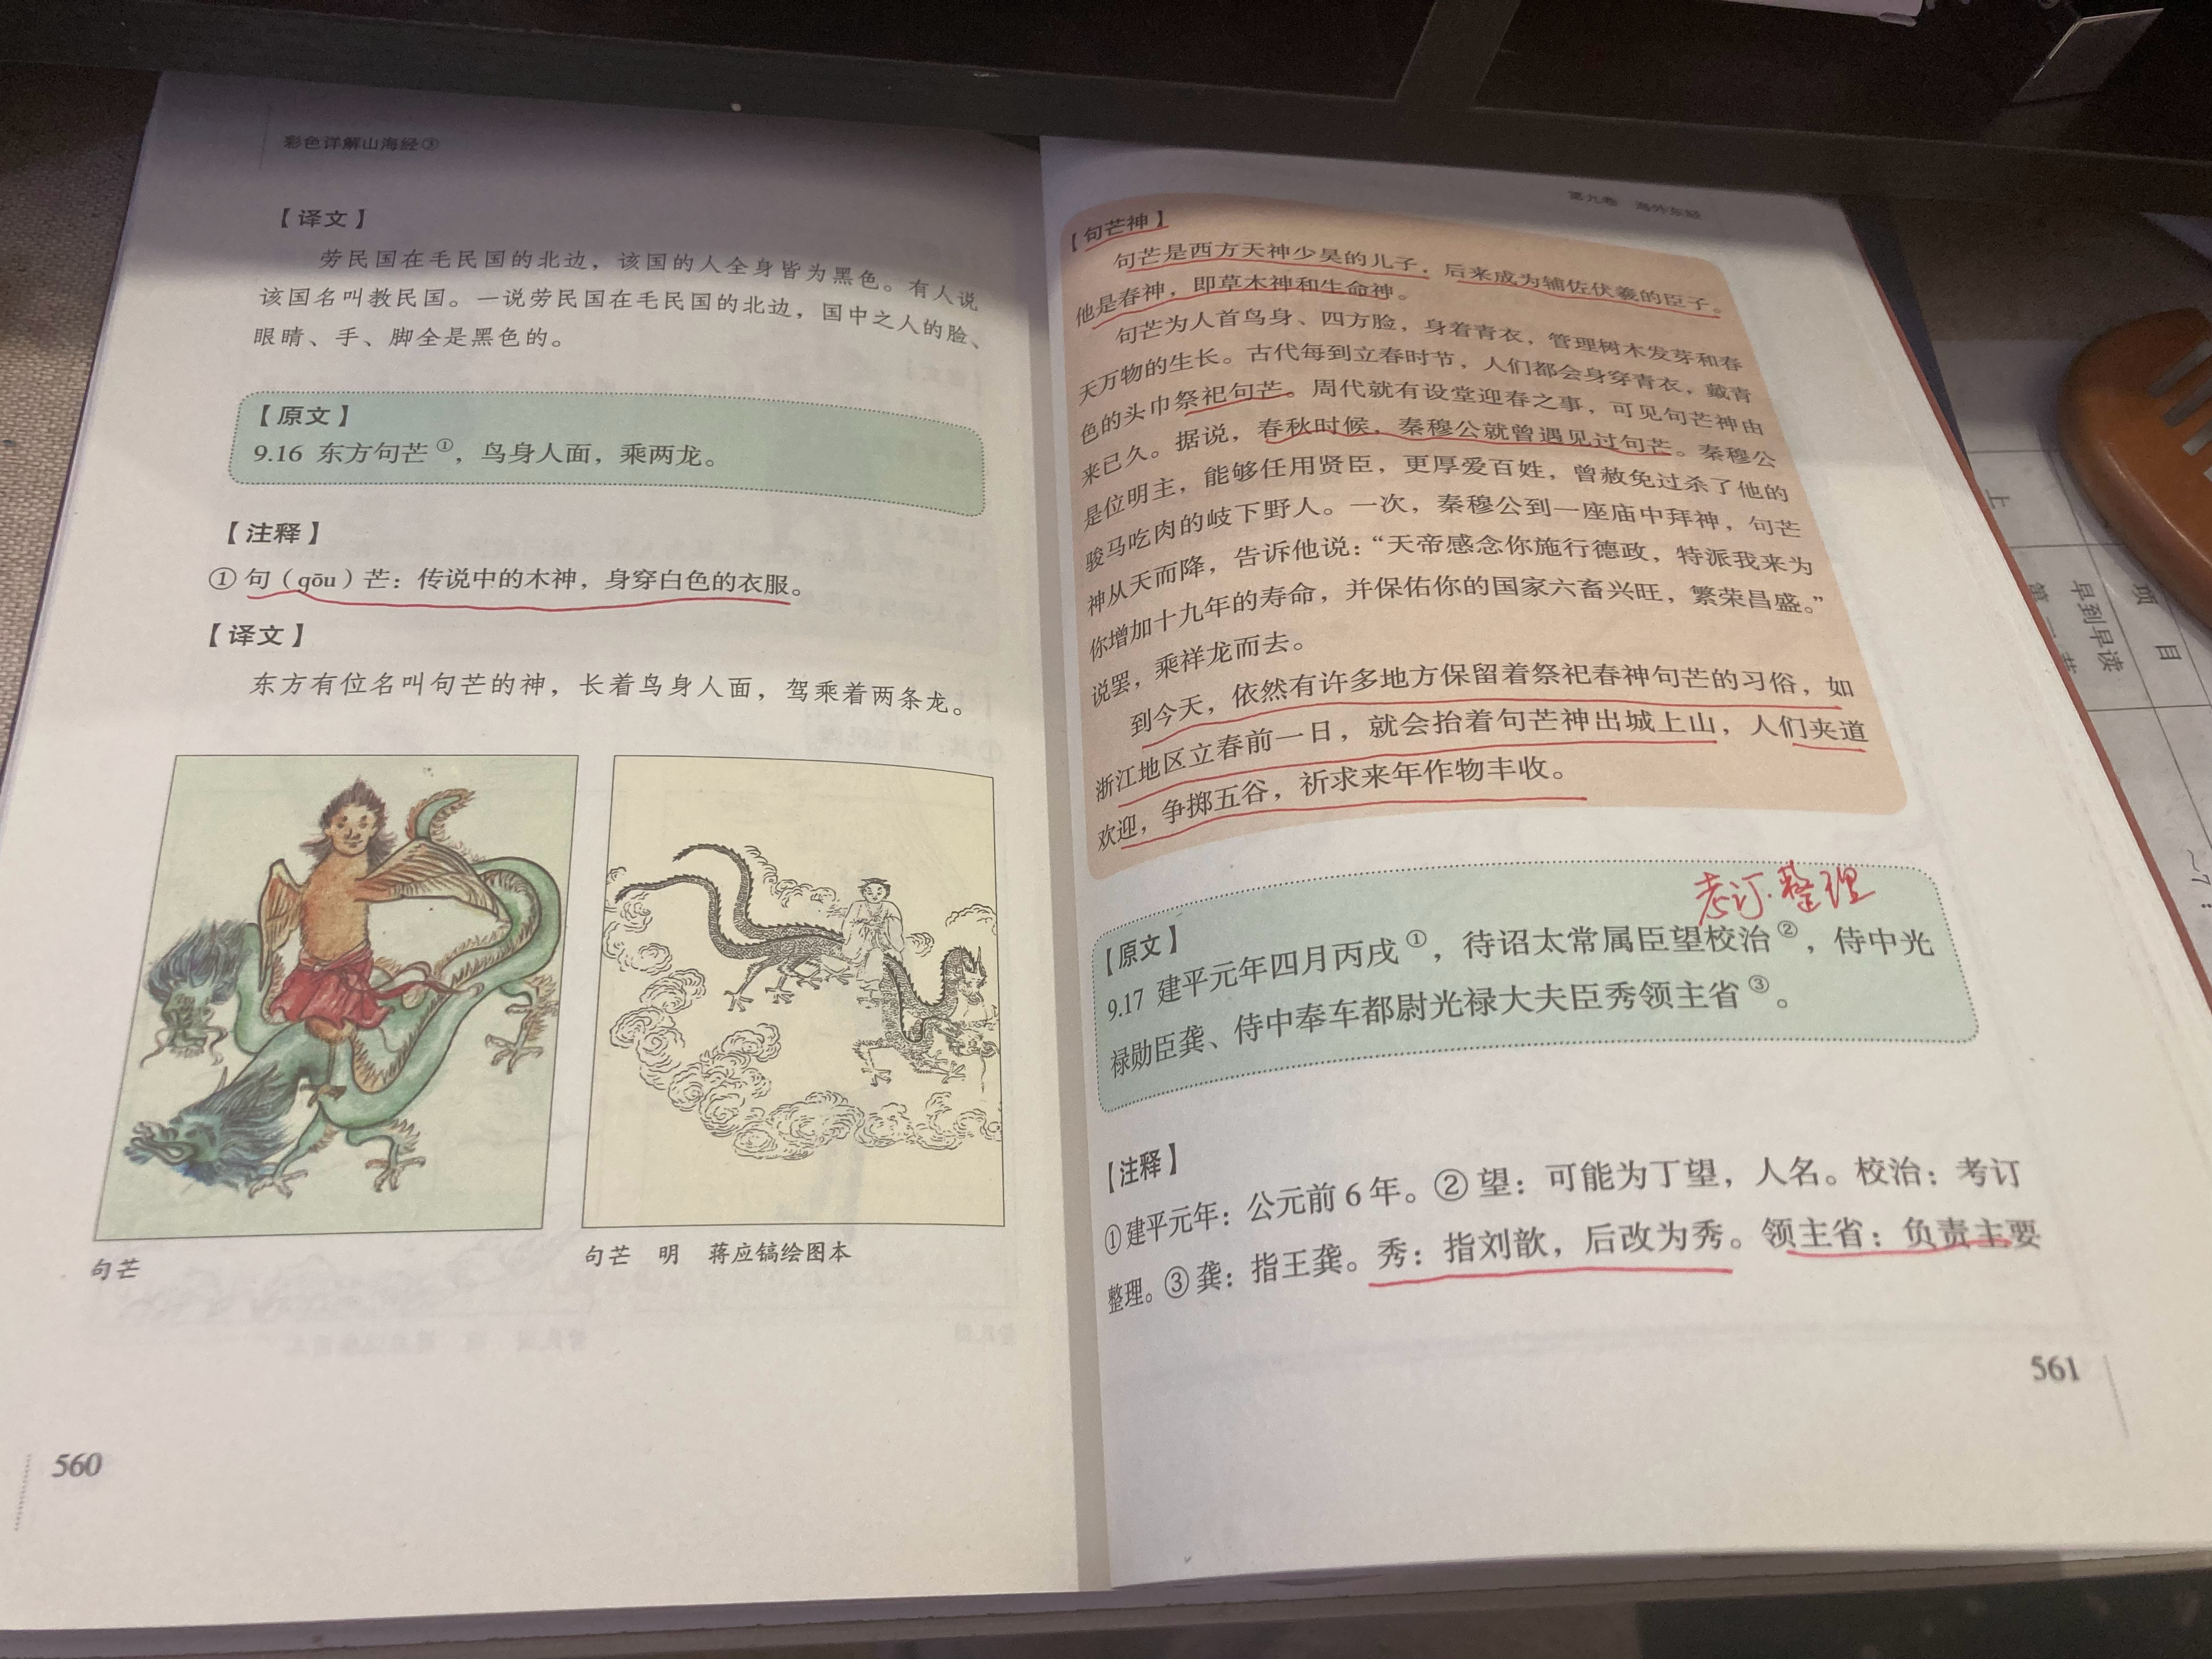 彩色详解山海经③
【译文】
劳民国在毛民国的北边，该国的人全身皆为黑色。有人说
该国名叫教民国。一说劳民国在毛民国的北边，国中之人的脸、
眼睛、手、脚全是黑色的。
【原文】
9.16 东方句芒①，鸟身人面，乘两龙。
【注释】
①句（gōu）芒：传说中的木神，身穿白色的衣服。
【译文】
东方有位名叫句芒的神，长着鸟身人面，驾乘着两条龙。
句芒
句芒 明 蒋应镐绘图本
560
第九卷 海外东经
【句芒神】
句芒是西方天神少昊的儿子，后来成为辅佐伏羲的臣子。
他是春神，即草木神和生命神。
句芒为人首鸟身、四方脸，身着青衣，管理树木发芽和春
天万物的生长。古代每到立春时节，人们都会身穿青衣，戴青
色的头巾祭祀句芒。周代就有设堂迎春之事，可见句芒神由
来已久。据说，春秋时候，秦穆公就曾遇见过句芒。秦穆公
是位明主，能够任用贤臣，更厚爱百姓，曾赦免过杀了他的
骏马吃肉的岐下野人。一次，秦穆公到一座庙中拜神，句芒
神从天而降，告诉他说：“天帝感念你施行德政，特派我来为
你增加十九年的寿命，并保佑你的国家六畜兴旺，繁荣昌盛。”
说罢，乘祥龙而去。
到今天，依然有许多地方保留着祭祀春神句芒的习俗，如
浙江地区立春前一日，就会抬着句芒神出城上山，人们夹道
欢迎，争掷五谷，祈求来年作物丰收。
考订.整理
【原文】
9.17 建平元年四月丙戌①，待诏太常属臣望校治②，侍中光
禄勋臣龚、侍中奉车都尉光禄大夫臣秀领主省③。
【注释】
①建平元年：公元前6年。②望：可能为丁望，人名。校治：考订
整理。③龚：指王龚。秀：指刘歆，后改为秀。领主省：负责主要
561
上
项 目
早到早读